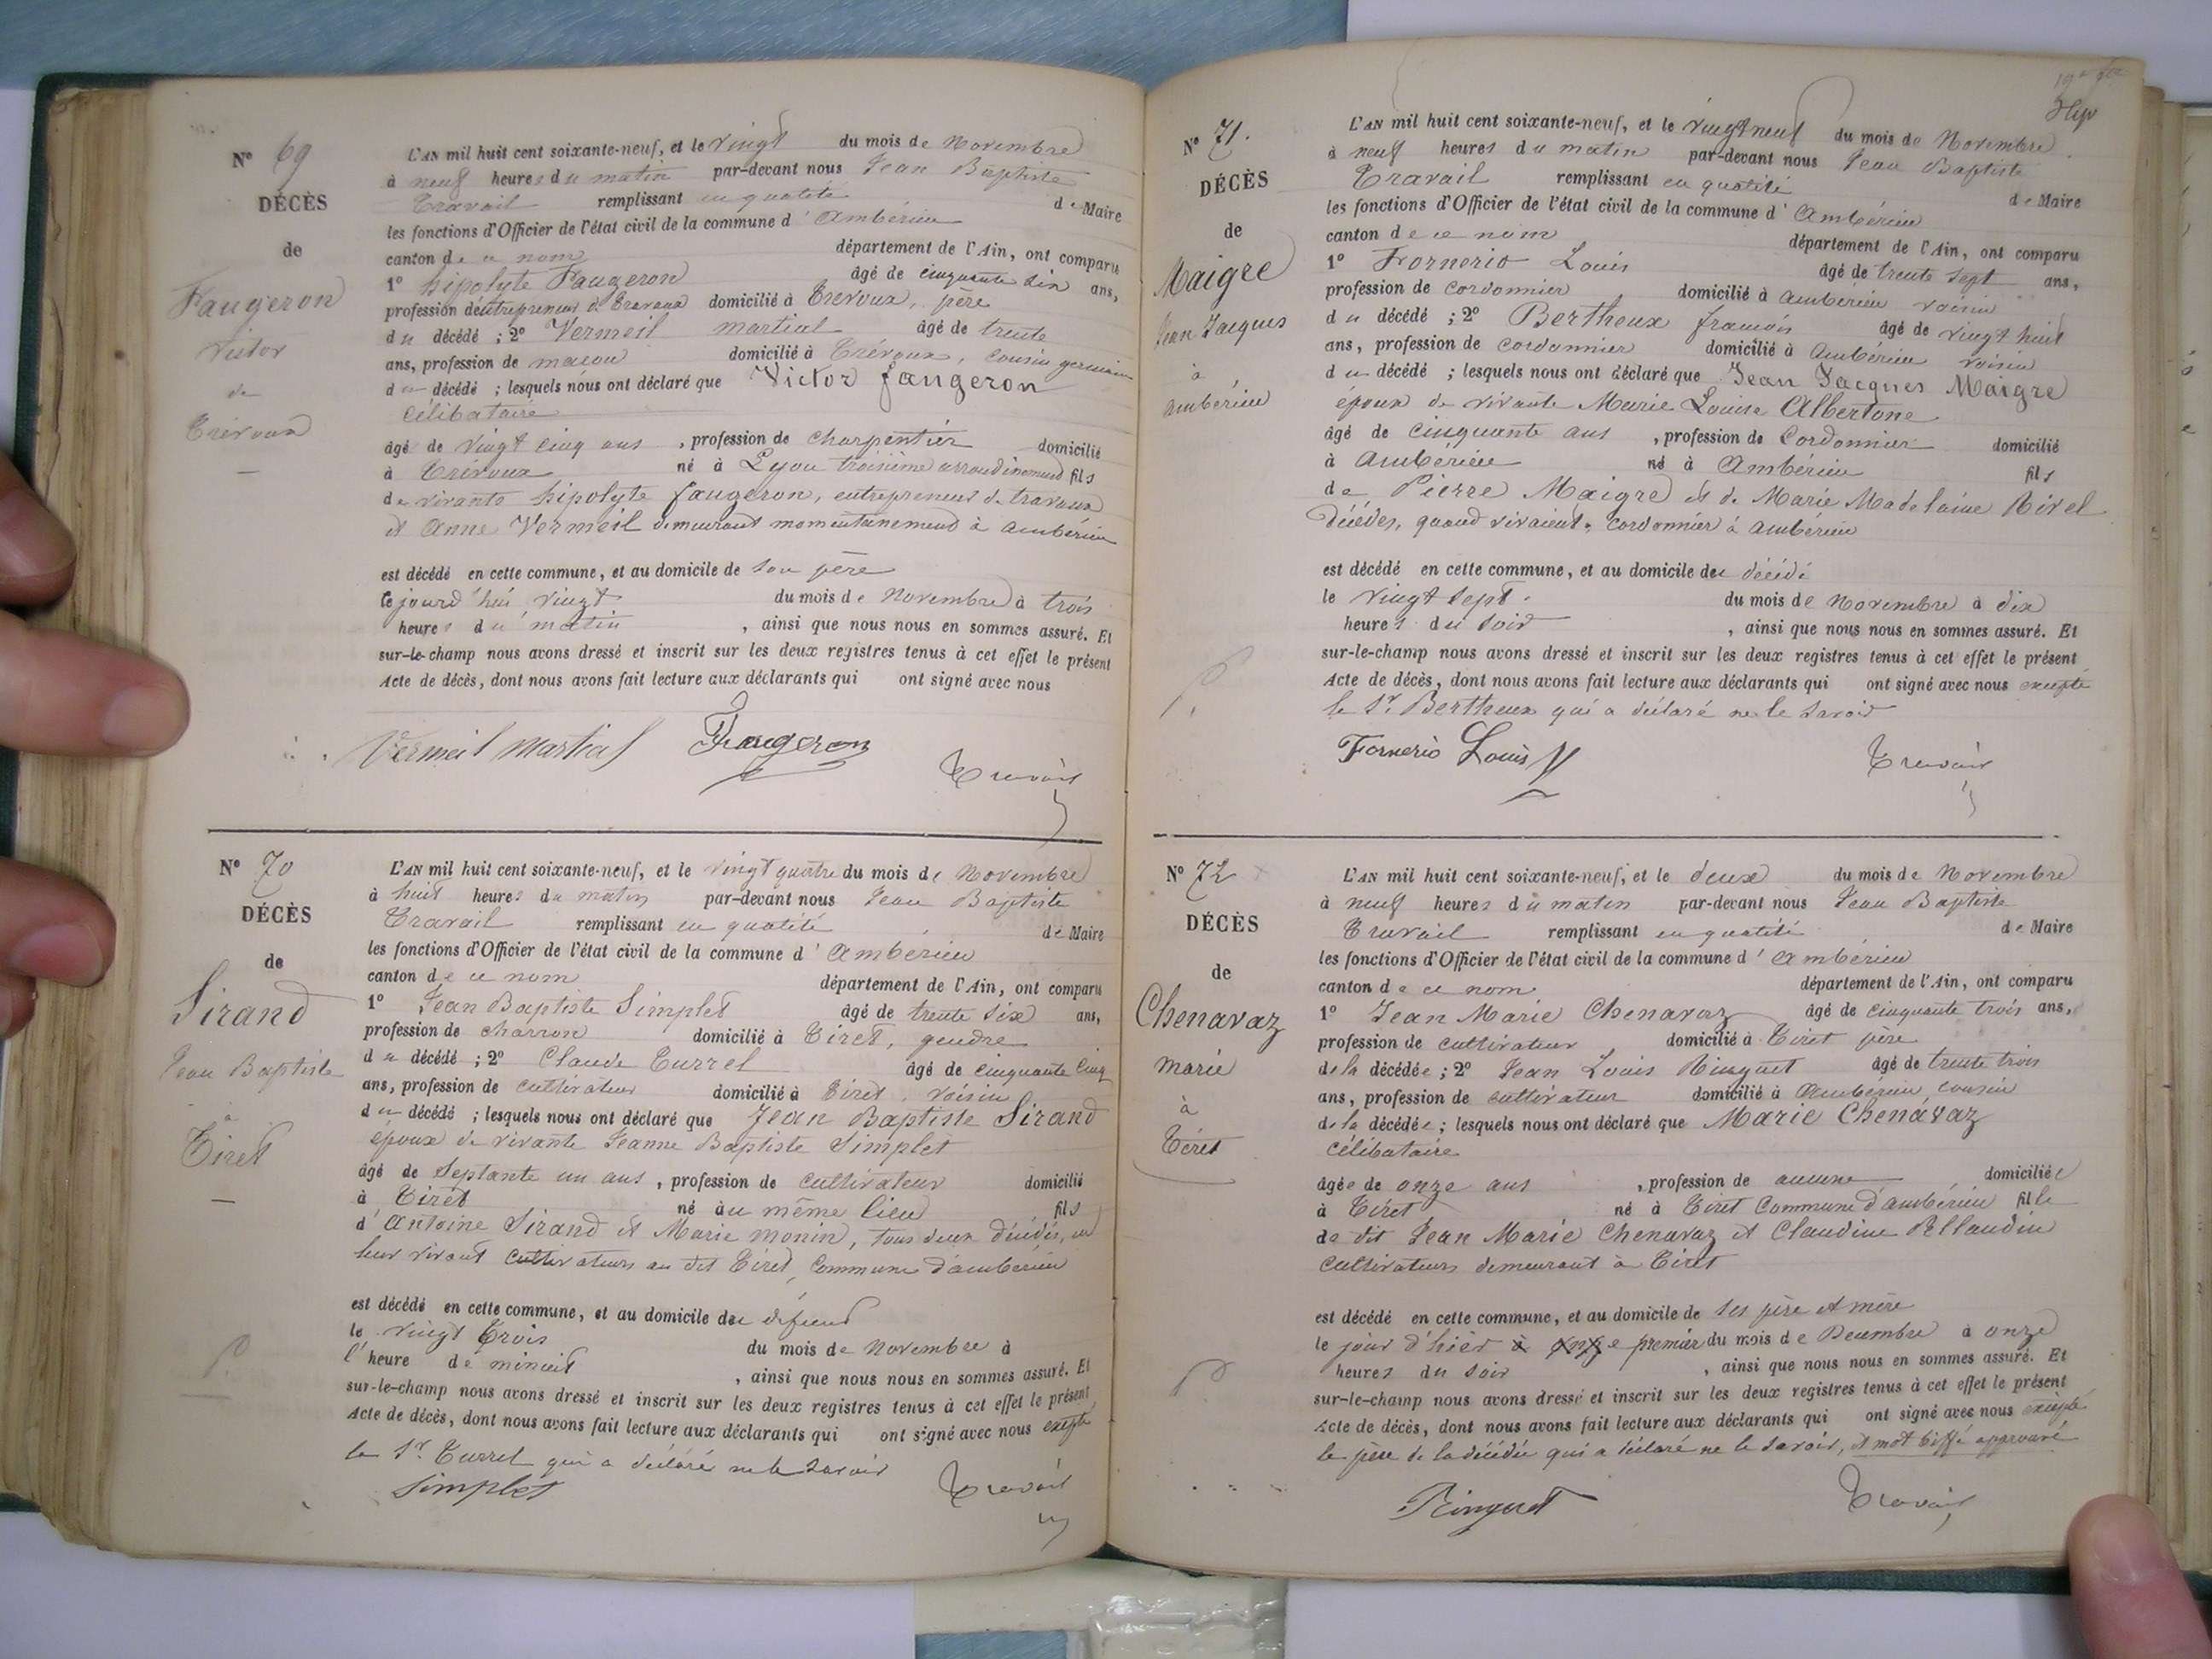 N° 69
DÉCÈS
de
Faugeron
victor
de
Trévoux
L'AN mil huit cent soixante-neuf, et le vingt du mois de Novembre
à neuf heures du matin par-devant nous Jean Baptiste
Travail remplissant en qualité de Maire
les fonctions d'Officier de l'état civil de la commune d'Ambérieu
canton de ce nom département de l'Ain, ont comparu
1° hipolyte Faugeron âgé de cinquante six ans,
profession d'entrepreneur de travaux domicilié à Trévoux, père
du décédé ; 2° Vermeil martial âgé de trente
ans, profession de maçon domicilié à Trévoux, cousin germain
du décédé ; lesquels nous ont déclaré que Victor faugeron
célibataire
âgé de vingt cinq ans, profession de charpentier domicilié
à Trévoux né à Lyon troisième arrondissement fils
de vivants hipolyte faugeron, entrepreneur de travaux
et Anne Vermeil demeurant momentanement à ambérieu
est décédé en cette commune, et au domicile de son père
le jourd'hui vingt du mois de Novembre à trois
heures du matin, ainsi que nous nous en sommes assuré. Et
sur-le-champ nous avons dressé et inscrit sur les deux registres tenus à cet effet le présent
Acte de décès, dont nous avons fait lecture aux déclarants qui ont signé avec nous
Vermeil Martial Faugeron
Travail
N° 70
DÉCÈS
de
Sirand
Jean Baptiste
à
Tiret
L'AN mil huit cent soixante-neuf, et le vingt quatre du mois de Novembre
à huit heures du matin par-devant nous Jean Baptiste
Travail remplissant en qualité de Maire
les fonctions d'Officier de l'état civil de la commune d'Ambérieu
canton de ce nom département de l'Ain, ont comparu
1° Jean Baptiste Simplet âgé de trente six ans,
profession de charron domicilié à Tiret, gendre
du décédé ; 2° Claude Turrel âgé de cinquante cinq
ans, profession de cultivateur domicilié à Tiret, voisin
du décédé ; lesquels nous ont déclaré que Jean Baptiste Sirand
époux de vivante Jeanne Baptiste Simplet
âgé de Septante un ans, profession de cultivateur domicilié
à Tiret né au même lieu fils
d'Antoine Sirand et Marie monin, tous deux décédés, en
leur vivant cultivateurs au dit Tiret, Commune d'ambérieu
est décédé en cette commune, et au domicile du défunt
le vingt Trois du mois de Novembre à
l'heure de minuit, ainsi que nous nous en sommes assuré. Et
sur-le-champ nous avons dressé et inscrit sur les deux registres tenus à cet effet le présent
Acte de décès, dont nous avons fait lecture aux déclarants qui ont signé avec nous excepté
le Sr. Turrel qui a déclaré ne le savoir
Simplet Travail
N° 71.
DÉCÈS
de
Maigre
Jean Jacques
à
ambérieu
L'AN mil huit cent soixante-neuf, et le vingt neuf du mois de Novembre
à neuf heures du matin par-devant nous Jean Baptiste
Travail remplissant en qualité de Maire
les fonctions d'Officier de l'état civil de la commune d'Ambérieu
canton de ce nom département de l'Ain, ont comparu
1° Fornerio Louis âgé de trente sept ans,
profession de cordonnier domicilié à ambérieu voisin
du décédé ; 2° Bertheux françois âgé de vingt huit
ans, profession de cordonnier domicilié à ambérieu voisin
du décédé ; lesquels nous ont déclaré que Jean Jacques Maigre
époux de vivante Marie Louise Albertone
âgé de cinquante ans, profession de Cordonnier domicilié
à Ambérieu né à Ambérieu fils
de Pierre Maigre et de Marie Madelaine Rivel
Décédés, quand vivaient, cordonnier à ambérieu
est décédé en cette commune, et au domicile du décédé
le vingt sept. du mois de Novembre à dix
heures du soir, ainsi que nous nous en sommes assuré. Et
sur-le-champ nous avons dressé et inscrit sur les deux registres tenus à cet effet le présent
Acte de décès, dont nous avons fait lecture aux déclarants qui ont signé avec nous excepté
le Sr. Bertheux qui a déclaré ne le savoir
Fornerio Louis Travail
N° 72
DÉCÈS
de
Chenavaz
marie
à
Téret
L'AN mil huit cent soixante-neuf, et le deux du mois de Novembre
à neuf heures du matin par-devant nous Jean Baptiste
Travail remplissant en qualité de Maire
les fonctions d'Officier de l'état civil de la commune d'Ambérieu
canton de ce nom département de l'Ain, ont comparu
1° Jean Marie Chenavaz âgé de cinquante trois ans,
profession de cultivateur domicilié à Tiret père
de la décédée ; 2° Jean Louis Ringuet âgé de trente trois
ans, profession de cultivateur domicilié à Ambérieu cousin
de la décédée ; lesquels nous ont déclaré que Marie Chenavaz
célibataire
âgée de onze ans, profession de aucune domiciliée
à Tiret né à Tiret Commune d'ambérieu fille
de dit Jean Marie Chenavaz et Claudine Pellaudin
cultivateurs demeurant à Tiret
est décédé en cette commune, et au domicile de ses père et mère
le jour d'hier à onze premier du mois de Decembre à onze
heures du soir, ainsi que nous nous en sommes assuré. Et
sur-le-champ nous avons dressé et inscrit sur les deux registres tenus à cet effet le présent
Acte de décès, dont nous avons fait lecture aux déclarants qui ont signé avec nous excepté
le père de la décédée qui a déclaré ne le savoir, et mot biffé approuvé
Ringuet Travail